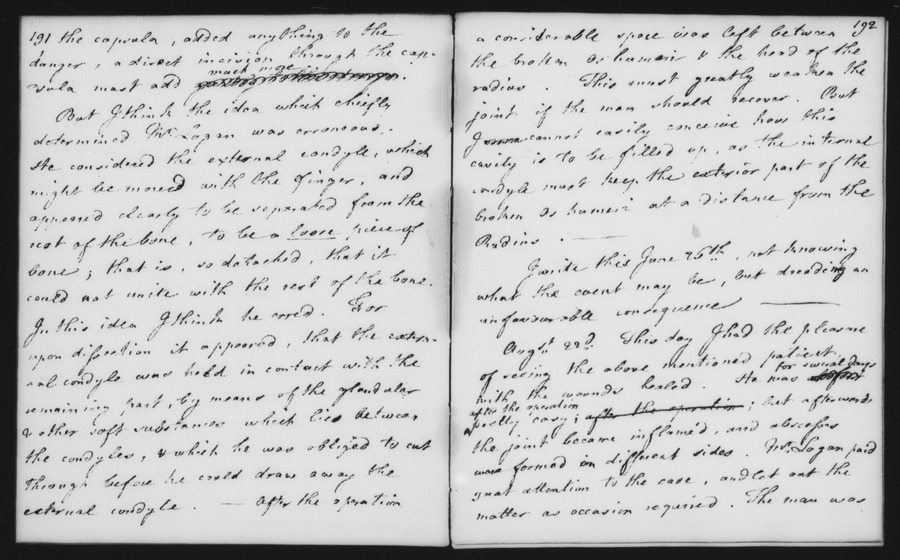 191 the capsula, added any thing to the
danger, a direct incision through the cap-
much more
sula must add
But I think the idea which chiefly
determined Mr. Logan was erroneous.
He considered the external condyle, which
might be moved with the finger, and
appeared clearly to be separated from the
rest of the bone, to be a loose piece of
bone; that is, so detached, that it
could not unite with the rest of the bone.
In this idea I think he erred. For
upon dissection it appeared, that the exter-
nal condyle was held in contact with the
remaining part, by means of the glandular
& other soft substances which lies between
the condyles, & which he was obliged to cut
through before he could draw away the
external condyle. — After the operation
192
a considerable space was left between
the broken Os humeri & the head of the
radius. This must greatly weaken the
joint if the man should recover. But
I cannot easily conceive how this
cavity is to be filled up, as the internal
condyle must keep the exterior part of the
broken Os humeri at a distance from the
Radius. —
I write this June 26th, not knowing
what the event may be, but dreading an
unfavourable consequence —
Augst 22d. This day I had the pleasure
of seeing the above mentioned patient,
for several days
with the wounds healed. He was
after the operation
pretty easy; after the operation; but afterwards
the joint became inflamed, and abscesses
were formed on different sides. Mr. Logan paid
great attention to the case, and let out the
matter as occasion required. The man was